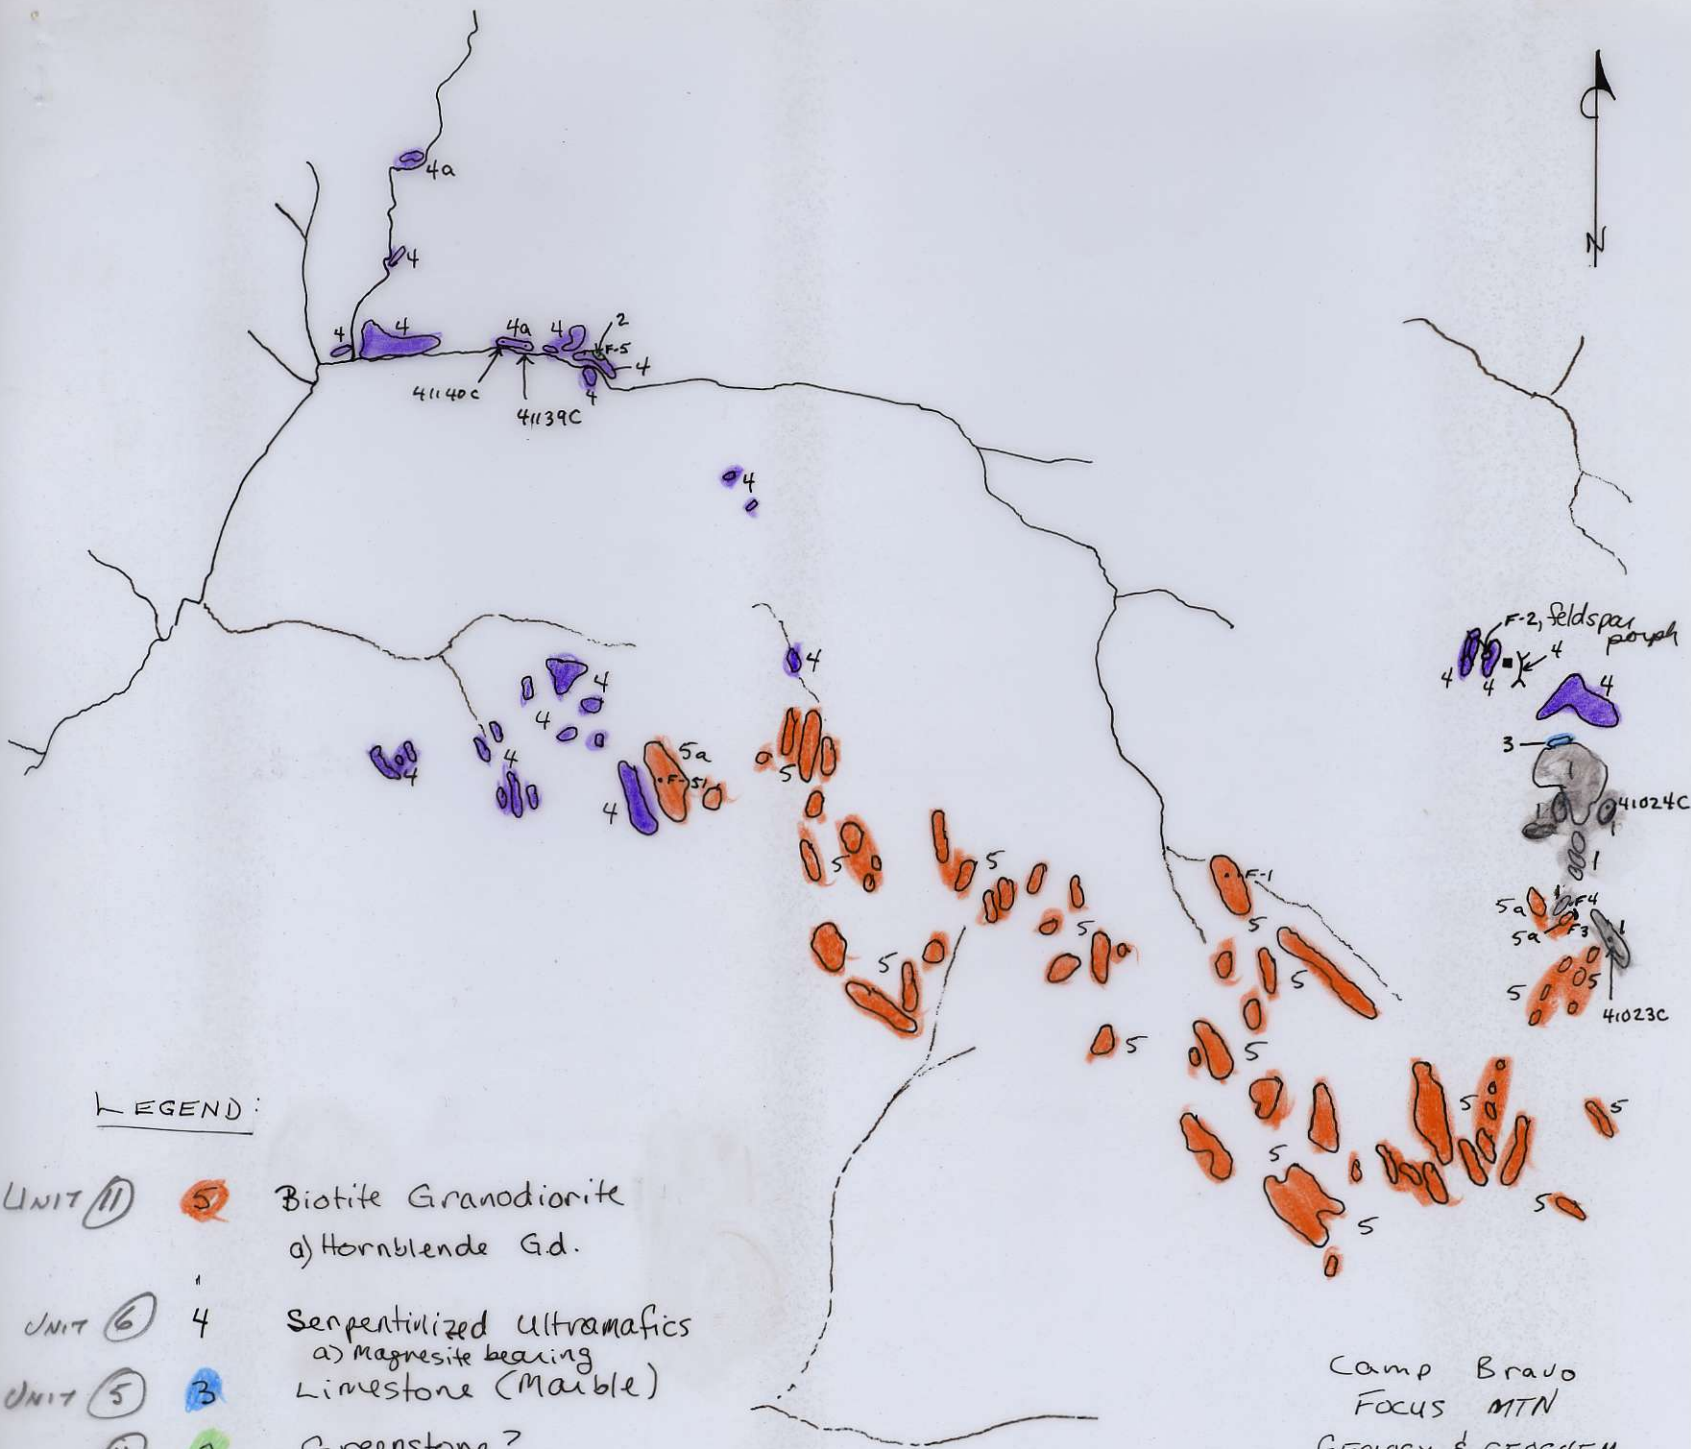 4a
4
4
4
4a
4
2
F-5
4
4
41140C
41139C
N
4
F-2, feldspar
porph
4
4
4
4
4
4
4
4
4
3
1
5a
5
4
41024C
1
1
1
5
5
F-1
5
5a
F4
F3
5a
1
5
5
5
5
5
41023C
5
5
5
5
5
5
5
LEGEND:
UNIT 11 5 Biotite Granodiorite
a) Hornblende G.d.
UNIT 6 4 Serpentinized Ultramafics
a) Magnesite bearing
UNIT 5 3 Limestone (Marble)
Greenstone?
Camp Bravo
FOCUS MTN
GEOLOGY & GEOCHEM